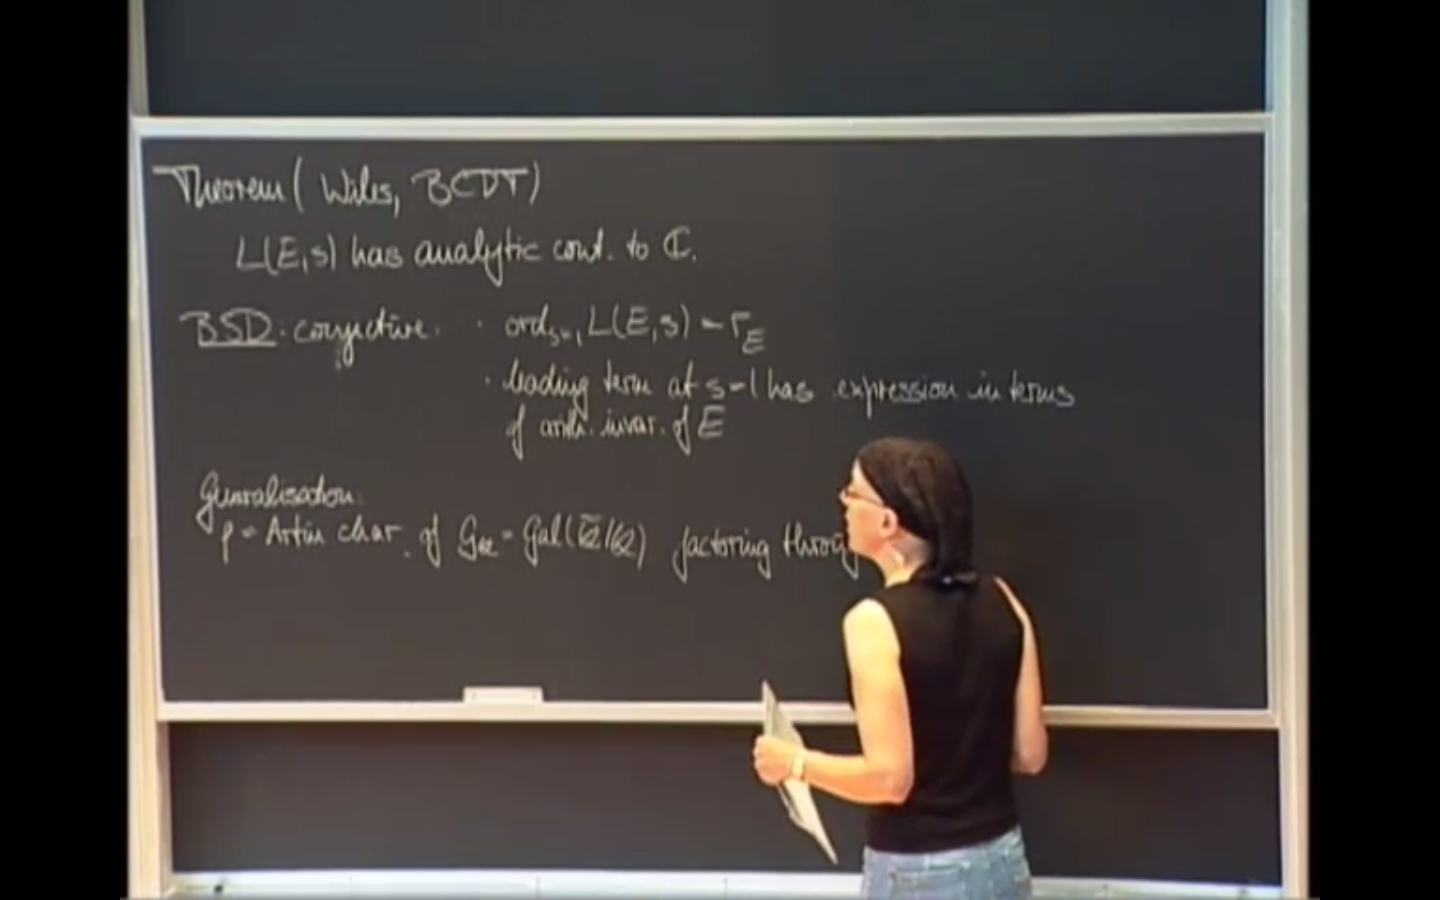 Theorem ( Wiles, BCDT )
L(E,s) has analytic cont. to ℂ.
BSD. conjecture. · ord_{s=1} L(E,s) = r_E
· leading term at s=1 has expression in terms
of arith. invar. of E
Generalisation.
ρ = Artin char. of G_ℚ = Gal(ℚ̄/ℚ) factoring through